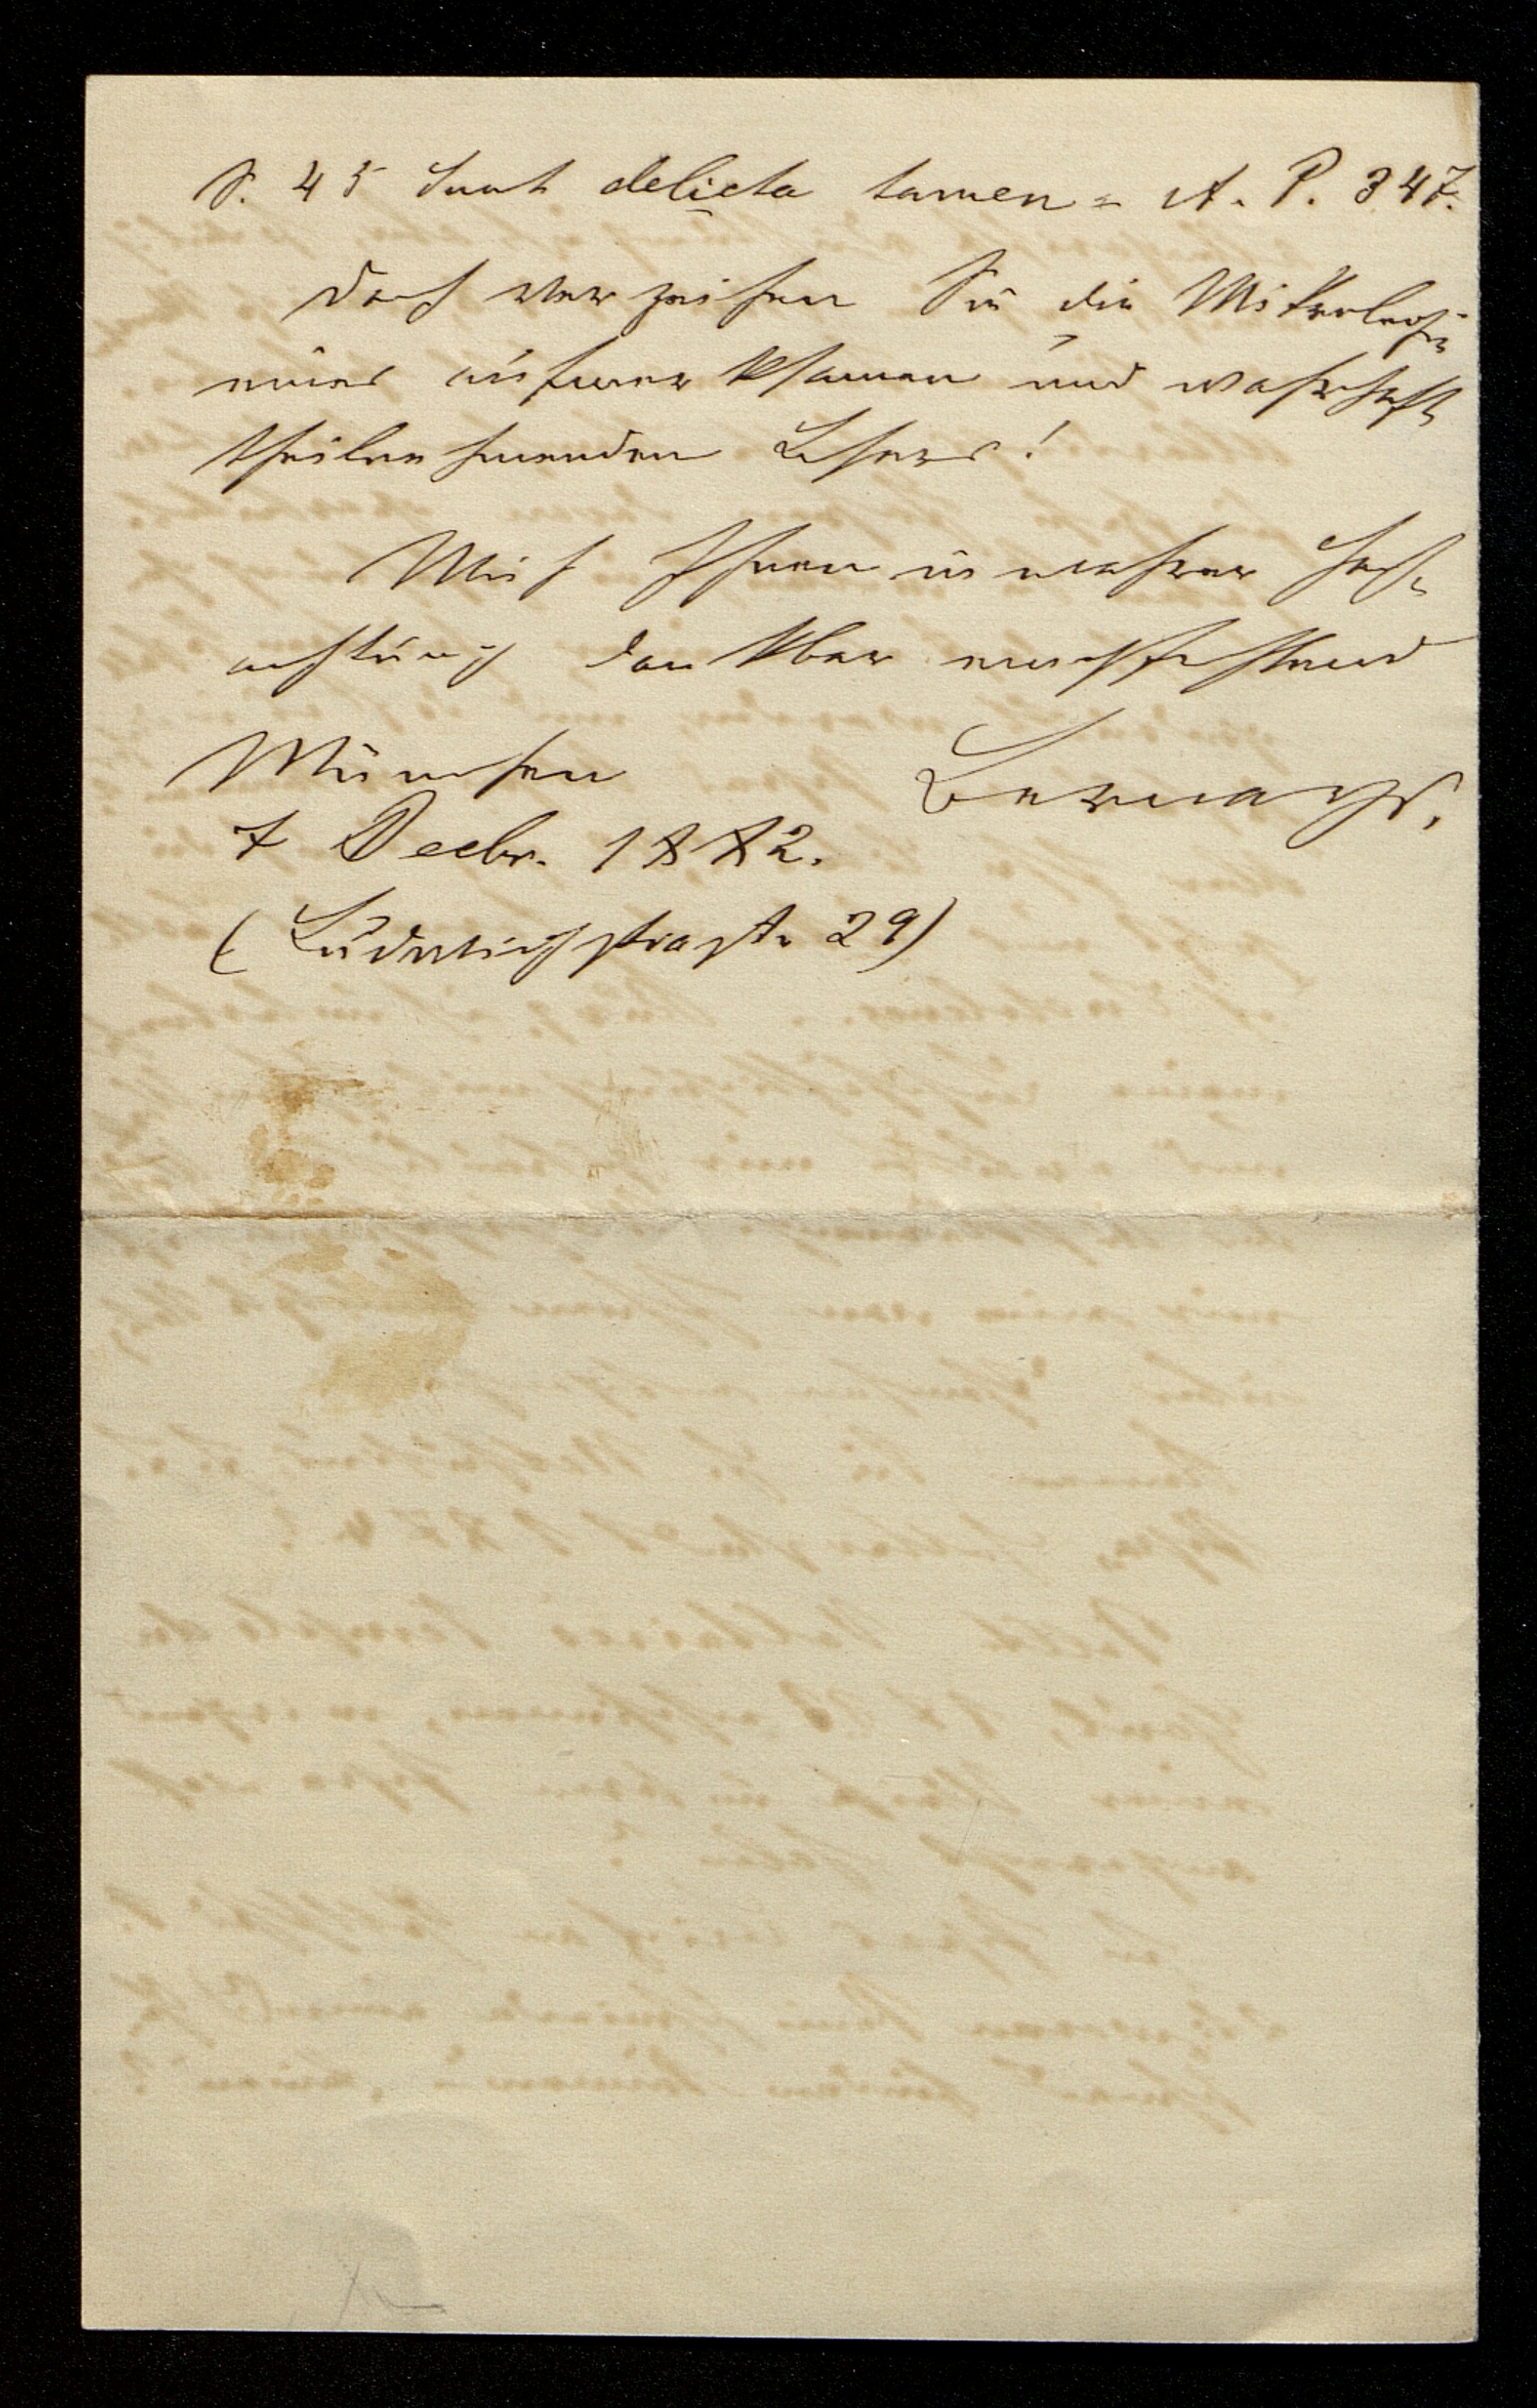 S. 45 Sunt delicta tamen = A. P. 347.
Doch verzeihen Sie die Mikrologie
eines aufmerksamen und wahrhaft
theilnehmenden Lesers!
Mich Ihnen in wahrer Hoch-
achtung dankbar empfehlend
München
7 Decbr. 1882.
(Ludwigstraße 29)